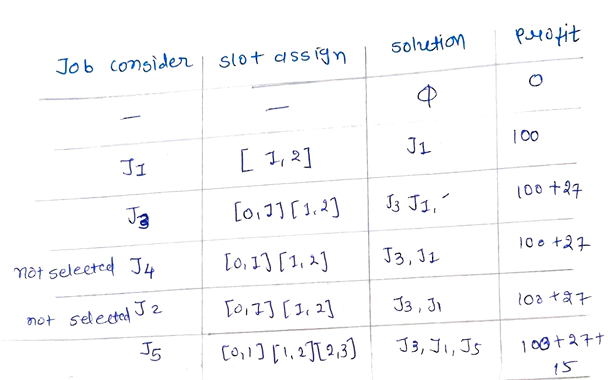 Job consider slot assign solution profit
— — Φ 0
J1 [ 1,2] J1 100
J3 [0,1] [1,2] J3 J1, 100 +27
not selected J4 [0,1] [1,2] J3, J1 100 +27
not selected J2 [0,1] [1,2] J3, J1 100 +27
J5 [0,1] [1,2] [2,3] J3, J1, J5 100+27+
15